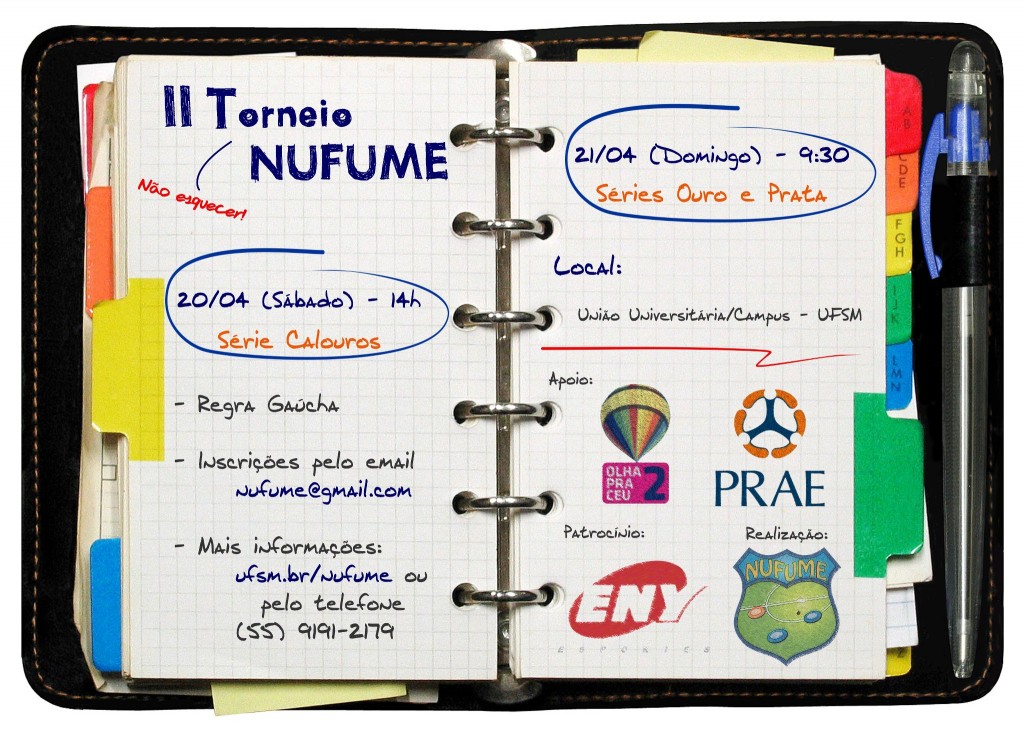 II Torneio
NUFUME
Não esquecer!
20/04 (Sábado) - 14h
Série Calouros
- Regra Gaúcha
- Inscrições pelo email
nufume@gmail.com
- Mais informações:
ufsm.br/nufume ou
pelo telefone
(55) 9191-2179
21/04 (Domingo) - 9:30
Séries Ouro e Prata
Local:
União Universitária/Campus - UFSM
Apoio:
OLHA
PRA
CEU 2
PRAE
Patrocínio:
Realização:
ENY
ESPORTES
NUFUME
AB
CDE
FGH
IJK
LMN
Z